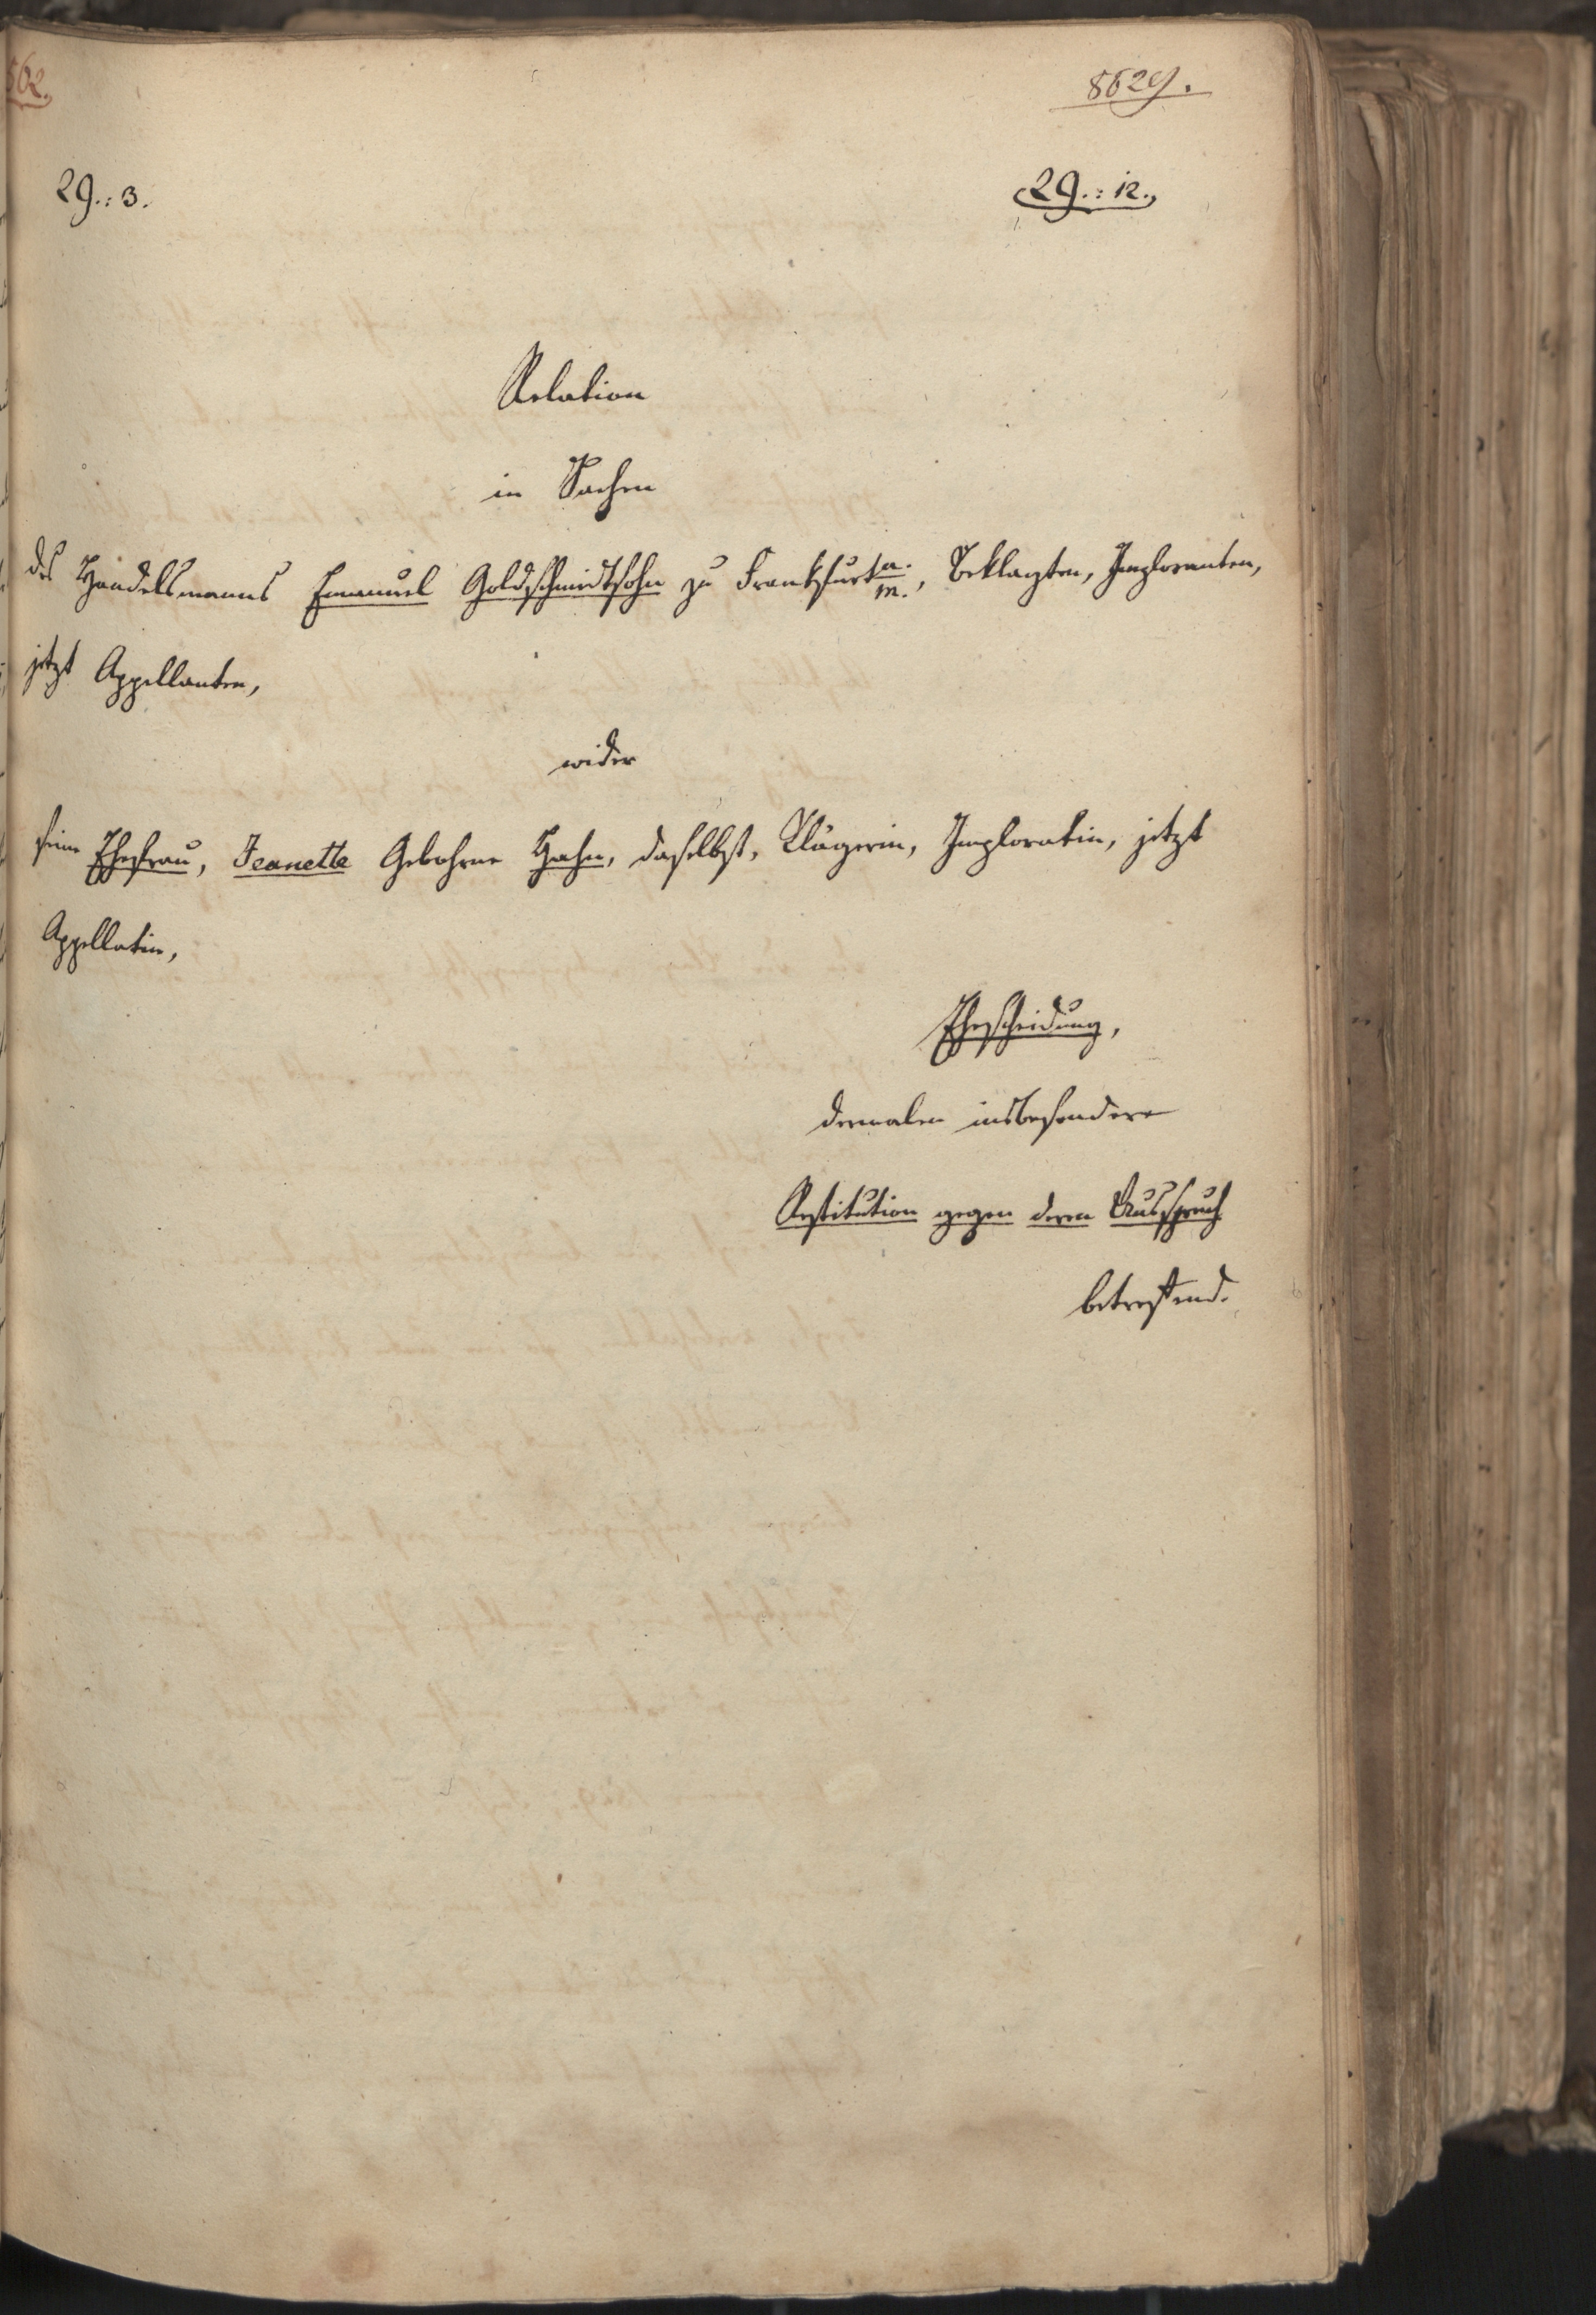 8629.
29.: 3.
29.: 12.
Relation
in Sachen
des Handelsmanns Emanuel Goldschmidtsohn zu Frankfurt a. m., Beklagten, Imploranten,
jetzt Appellanten,
wider
seine Ehefrau, Jeanette Gebohrne Hahn, daselbst, Klägerin, Imploratin, jetzt
Appellatin,
Ehescheidung,
dermalen insbesondere
Restitution gegen deren Ausspruch
betreffend.